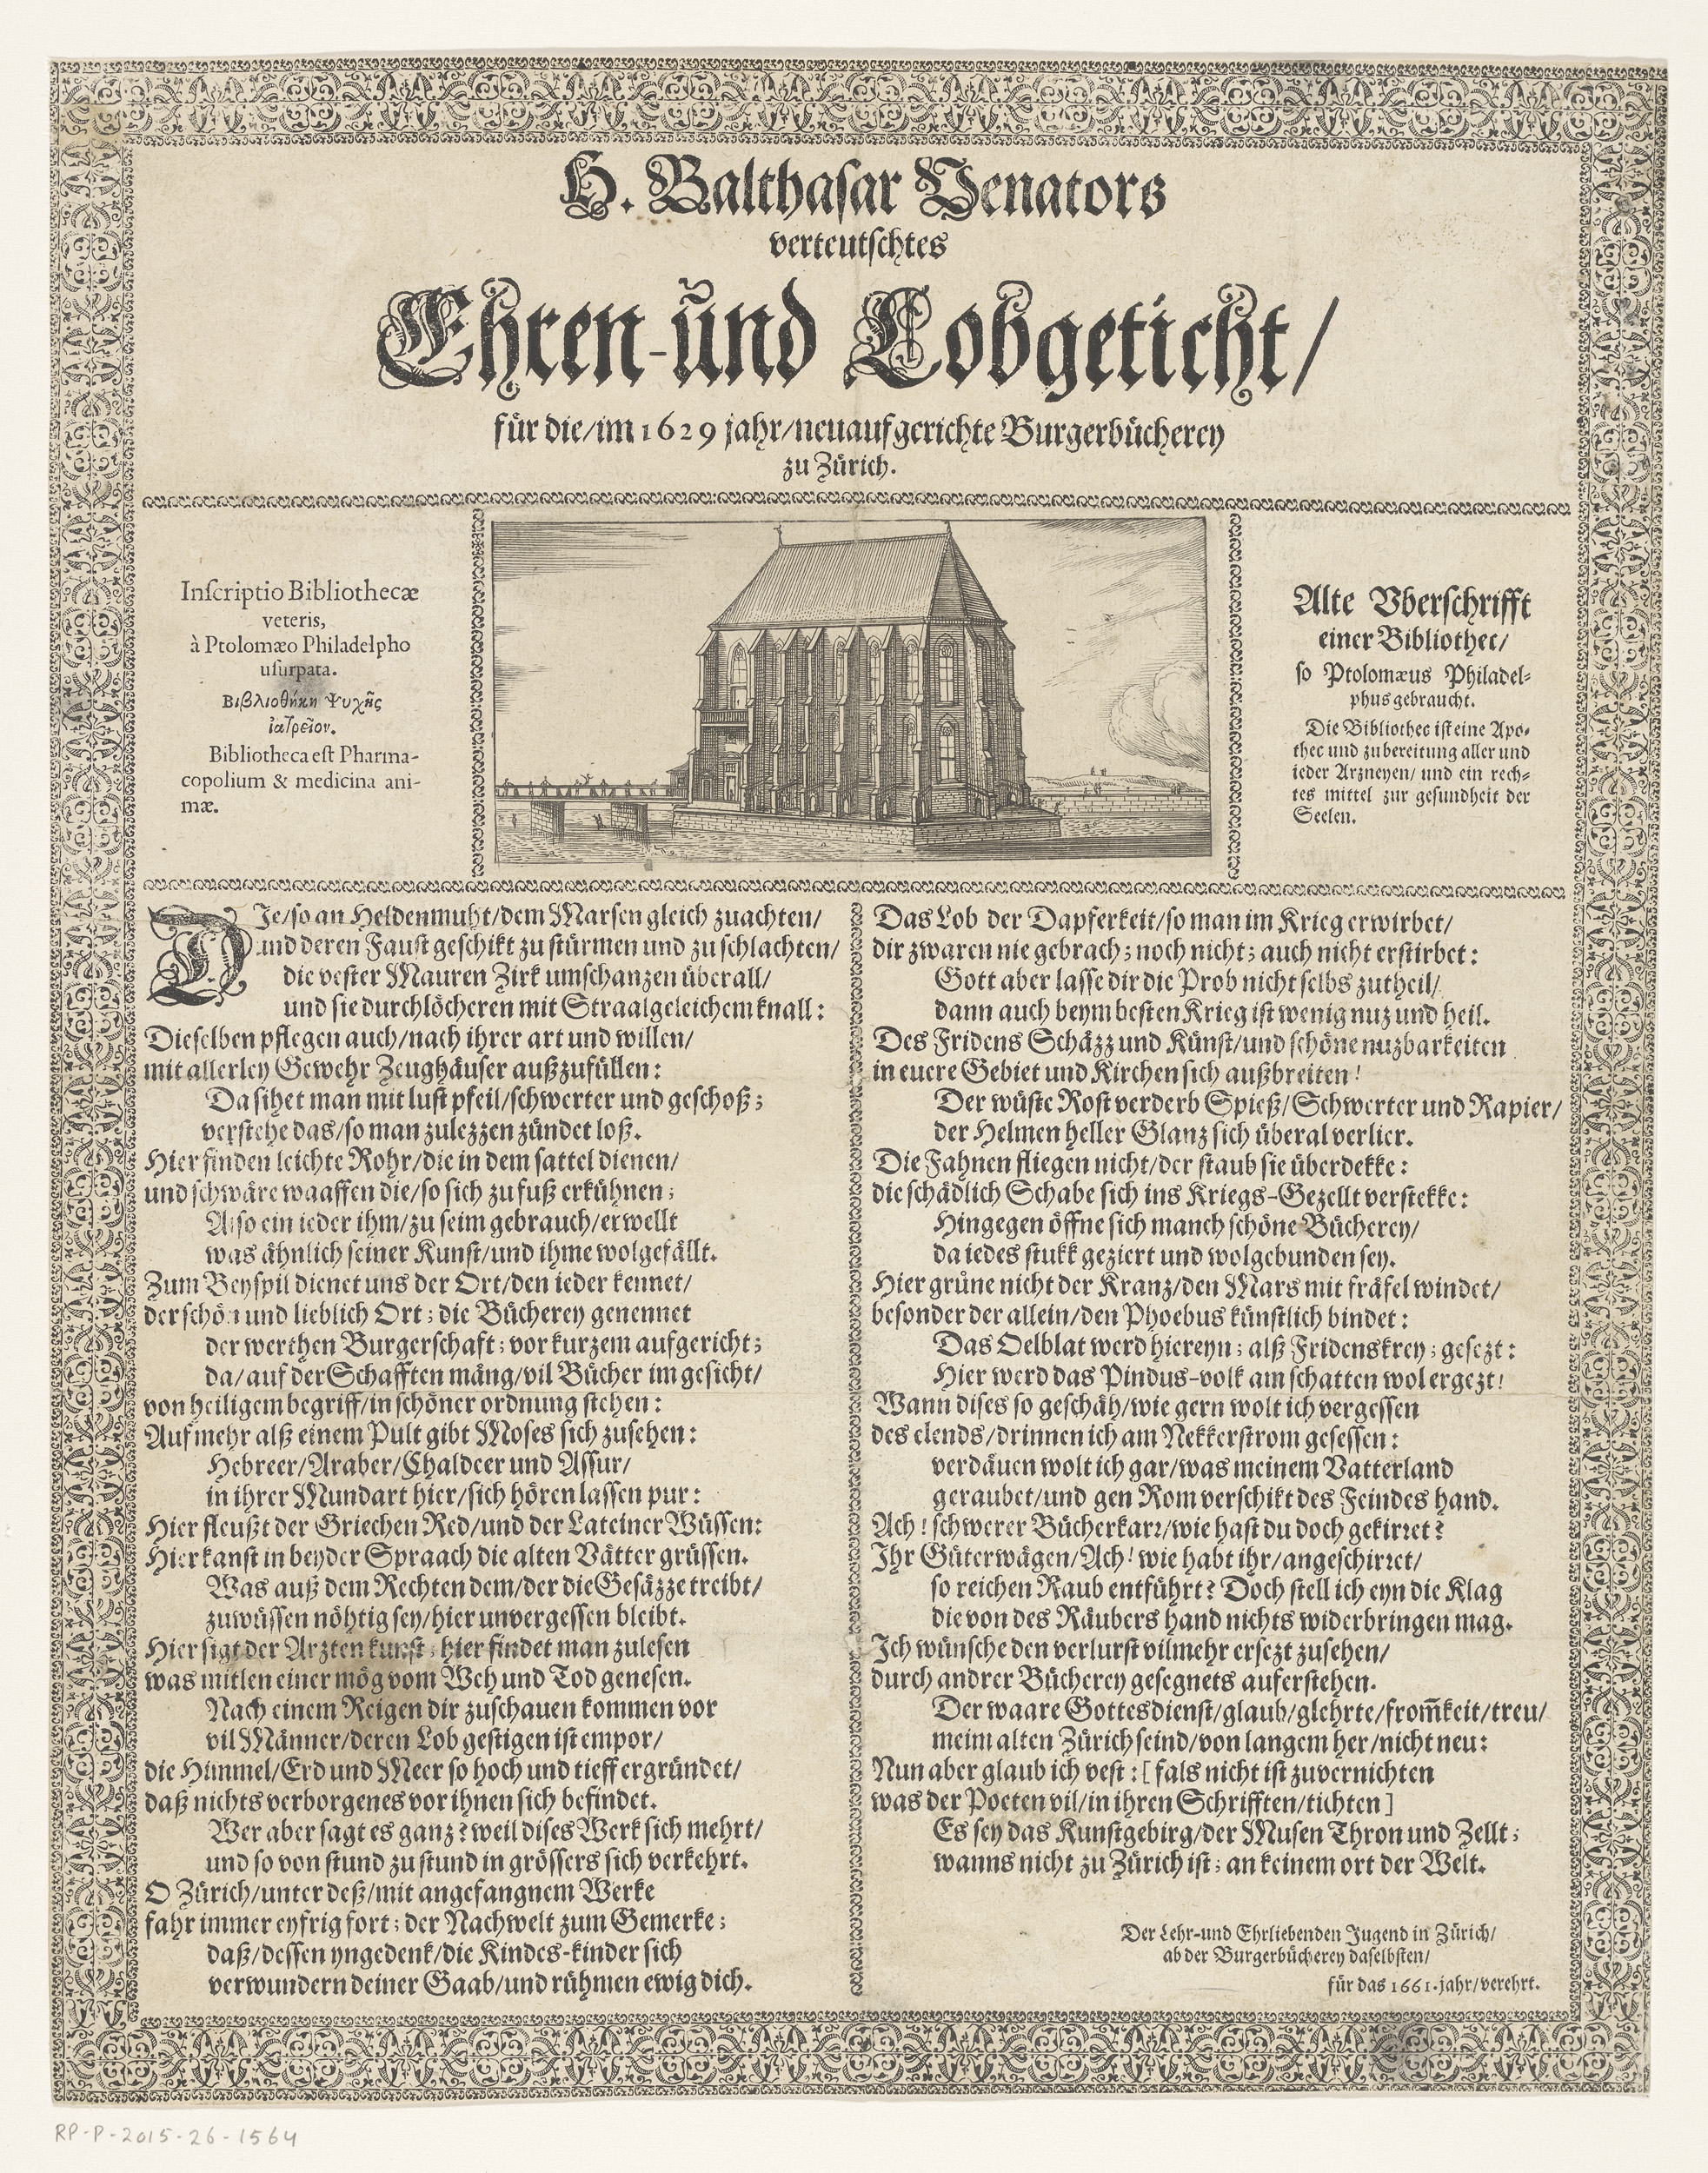 H. Balthasar Venators
verteutschtes
Ehren-und Lobgeticht/
für die/im 1629 jahr/neuaufgerichte Burgerbücherey
zu Zürich.
Inscriptio Bibliothecæ
veteris,
à Ptolomæo Philadelpho
usurpata.
Βιβλιοθήκη Ψυχῆς
ἰατρεῖον.
Bibliotheca est Pharma-
copolium & medicina ani-
mæ.
Alte Vberschrifft
einer Bibliothec/
so Ptolomæus Philadel-
phus gebraucht.
Die Bibliothec ist eine Apo-
thec und zubereitung aller und
ieder Arzneyen/ und ein rech-
tes mittel zur gesundheit der
Seelen.
DIe/so an Heldenmuht/dem Marsen gleich zuachten/
und deren Faust geschikt zu stürmen und zu schlachten/
die vester Mauren Zirk umschanzen überall/
und sie durchlöcheren mit Straalgeleichem knall:
Dieselben pflegen auch/nach ihrer art und willen/
mit allerley Gewehr Zeughäuser außzufüllen:
Da sihet man mit lust pfeil/schwerter und geschoß;
verstehe das/so man zulezzen zündet loß.
Hier finden leichte Rohr/die in dem sattel dienen/
und schwäre waaffen die/so sich zu fuß erkühnen;
Also ein ieder ihm/zu seim gebrauch/erwellt
was ähnlich seiner Kunst/und ihme wolgefällt.
Zum Beyspil dienet uns der Ort/den ieder kennet/
der schön und lieblich Ort; die Bücherey genennet
der werthen Burgerschaft; vor kurzem aufgericht;
da/auf der Schafften mäng/vil Bücher im gesicht/
von heiligem begriff/in schöner ordnung stehen:
Auf mehr alß einem Pult gibt Moses sich zusehen:
Hebreer/Araber/Chaldeer und Assur/
in ihrer Mundart hier/sich hören lassen pur:
Hier fleußt der Griechen Red/und der Lateiner Wüssen:
Hier kanst in beyder Spraach die alten Vätter grüssen.
Was auß dem Rechten dem/der die Gesäzze treibt/
zuwüssen nöhtig sey/hier unvergessen bleibt.
Hier sigt der Arzten kunst; hier findet man zulesen
was mitlen einer mög vom Weh und Tod genesen.
Nach einem Reigen dir zuschauen kommen vor
vil Männer/deren Lob gestigen ist empor/
die Himmel/Erd und Meer so hoch und tieff ergründet/
daß nichts verborgenes vor ihnen sich befindet.
Wer aber sagt es ganz? weil dises Werk sich mehrt/
und so von stund zu stund in grössers sich verkehrt.
O Zürich/unter deß/mit angefangnem Werke
fahr immer eyfrig fort; der Nachwelt zum Gemerke;
daß/dessen yngedenk/die Kindes-kinder sich
verwundern deiner Gaab/und rühmen ewig dich.
Das Lob der Dapferkeit/so man im Krieg erwirbet/
dir zwaren nie gebrach; noch nicht; auch nicht erstirbet:
Gott aber lasse dir die Prob nicht selbs zutheil/
dann auch beym besten Krieg ist wenig nuz und heil.
Des Fridens Schäzz und Künst/und schöne nuzbarkeiten
in euere Gebiet und Kirchen sich außbreiten!
Der wüste Rost verderb Spieß/Schwerter und Rapier/
der Helmen heller Glanz sich überal verlier.
Die Fahnen fliegen nicht/der staub sie überdekke:
die schädlich Schabe sich ins Kriegs-Gezellt verstekke:
Hingegen öffne sich manch schöne Bücherey/
da iedes stukk geziert und wolgebunden sey.
Hier grüne nicht der Kranz/den Mars mit fräfel windet/
besonder der allein/den Phoebus künstlich bindet:
Das Oelblat werd hiereyn; alß Fridenskrey; gesezt:
Hier werd das Pindus-volk am schatten wol ergezt!
Wann dises so geschäh/wie gern wolt ich vergessen
des elends/drinnen ich am Nekkerstrom gesessen:
verdäuen wolt ich gar/was meinem Vatterland
geraubet/und gen Rom verschikt des Feindes hand.
Ach! schwerer Bücherkarr/wie hast du doch gekirret?
Ihr Güterwägen/Ach! wie habt ihr/angeschirret/
so reichen Raub entführt? Doch stell ich eyn die Klag
die von des Räubers hand nichts widerbringen mag.
Ich wünsche den verlurst vilmehr ersezt zusehen/
durch andrer Bücherey gesegnets auferstehen.
Der waare Gottesdienst/glaub/glehrte/from̃keit/treu/
meim alten Zürich seind/von langem her/nicht neu:
Nun aber glaub ich vest: [fals nicht ist zuvernichten
was der Poeten vil/in ihren Schrifften/tichten]
Es sey das Kunstgebirg/der Musen Thron und Zellt;
wanns nicht zu Zürich ist; an keinem ort der Welt.
Der Lehr-und Ehrliebenden Jugend in Zürich/
ab der Burgerbücherey daselbsten/
für das 1661. jahr/verehrt.
RP-P-2015-26-1564